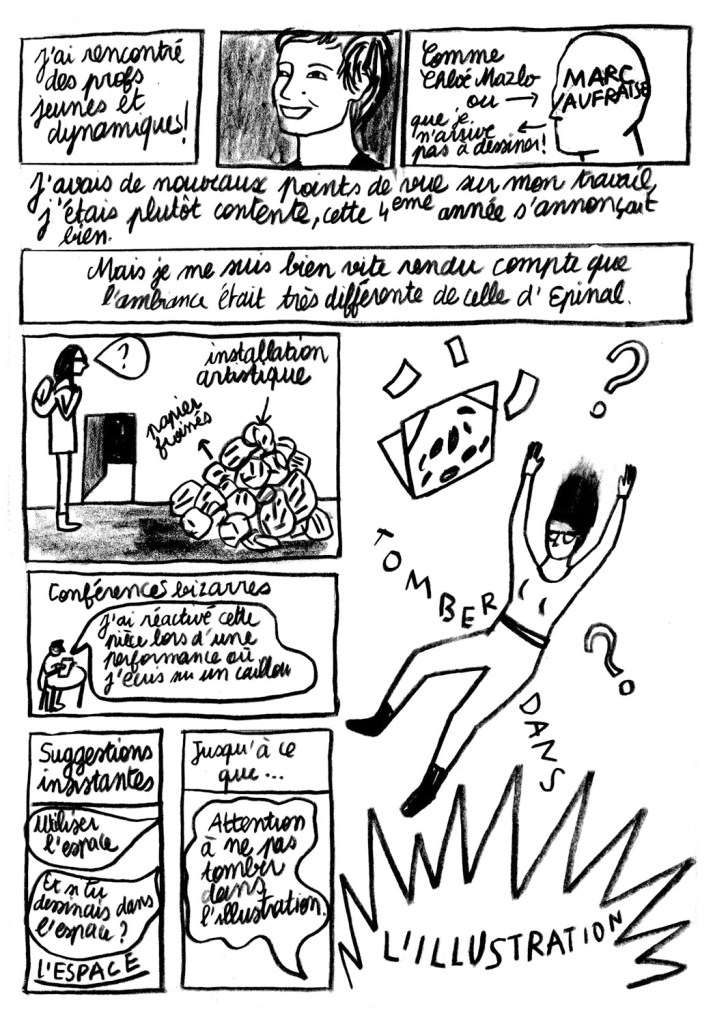 J'ai rencontré
des profs
jeunes et
dynamiques!
Comme
Chloé Mazlo
ou
que je
n'arrive
pas à dessiner!
MARC
AUFRAISE
J'avais de nouveaux points de vue sur mon travail,
j'étais plutôt contente, cette 4eme année s'annonçait
bien.
Mais je me suis bien vite rendu compte que
l'ambiance était très différente de celle d'Epinal.
?
installation
artistique
papiers
froissés
Conférences bizarres
J'ai réactivé cette
pièce lors d'une
performance où
j'écris sur un caillou
Suggestions
insistantes
Utiliser
l'espace
Et si tu
dessinais dans
l'espace?
L'ESPACE
Jusqu'à ce
que...
Attention
à ne pas
tomber
dans
l'illustration.
?
TOMBER
?
DANS
L'ILLUSTRATION